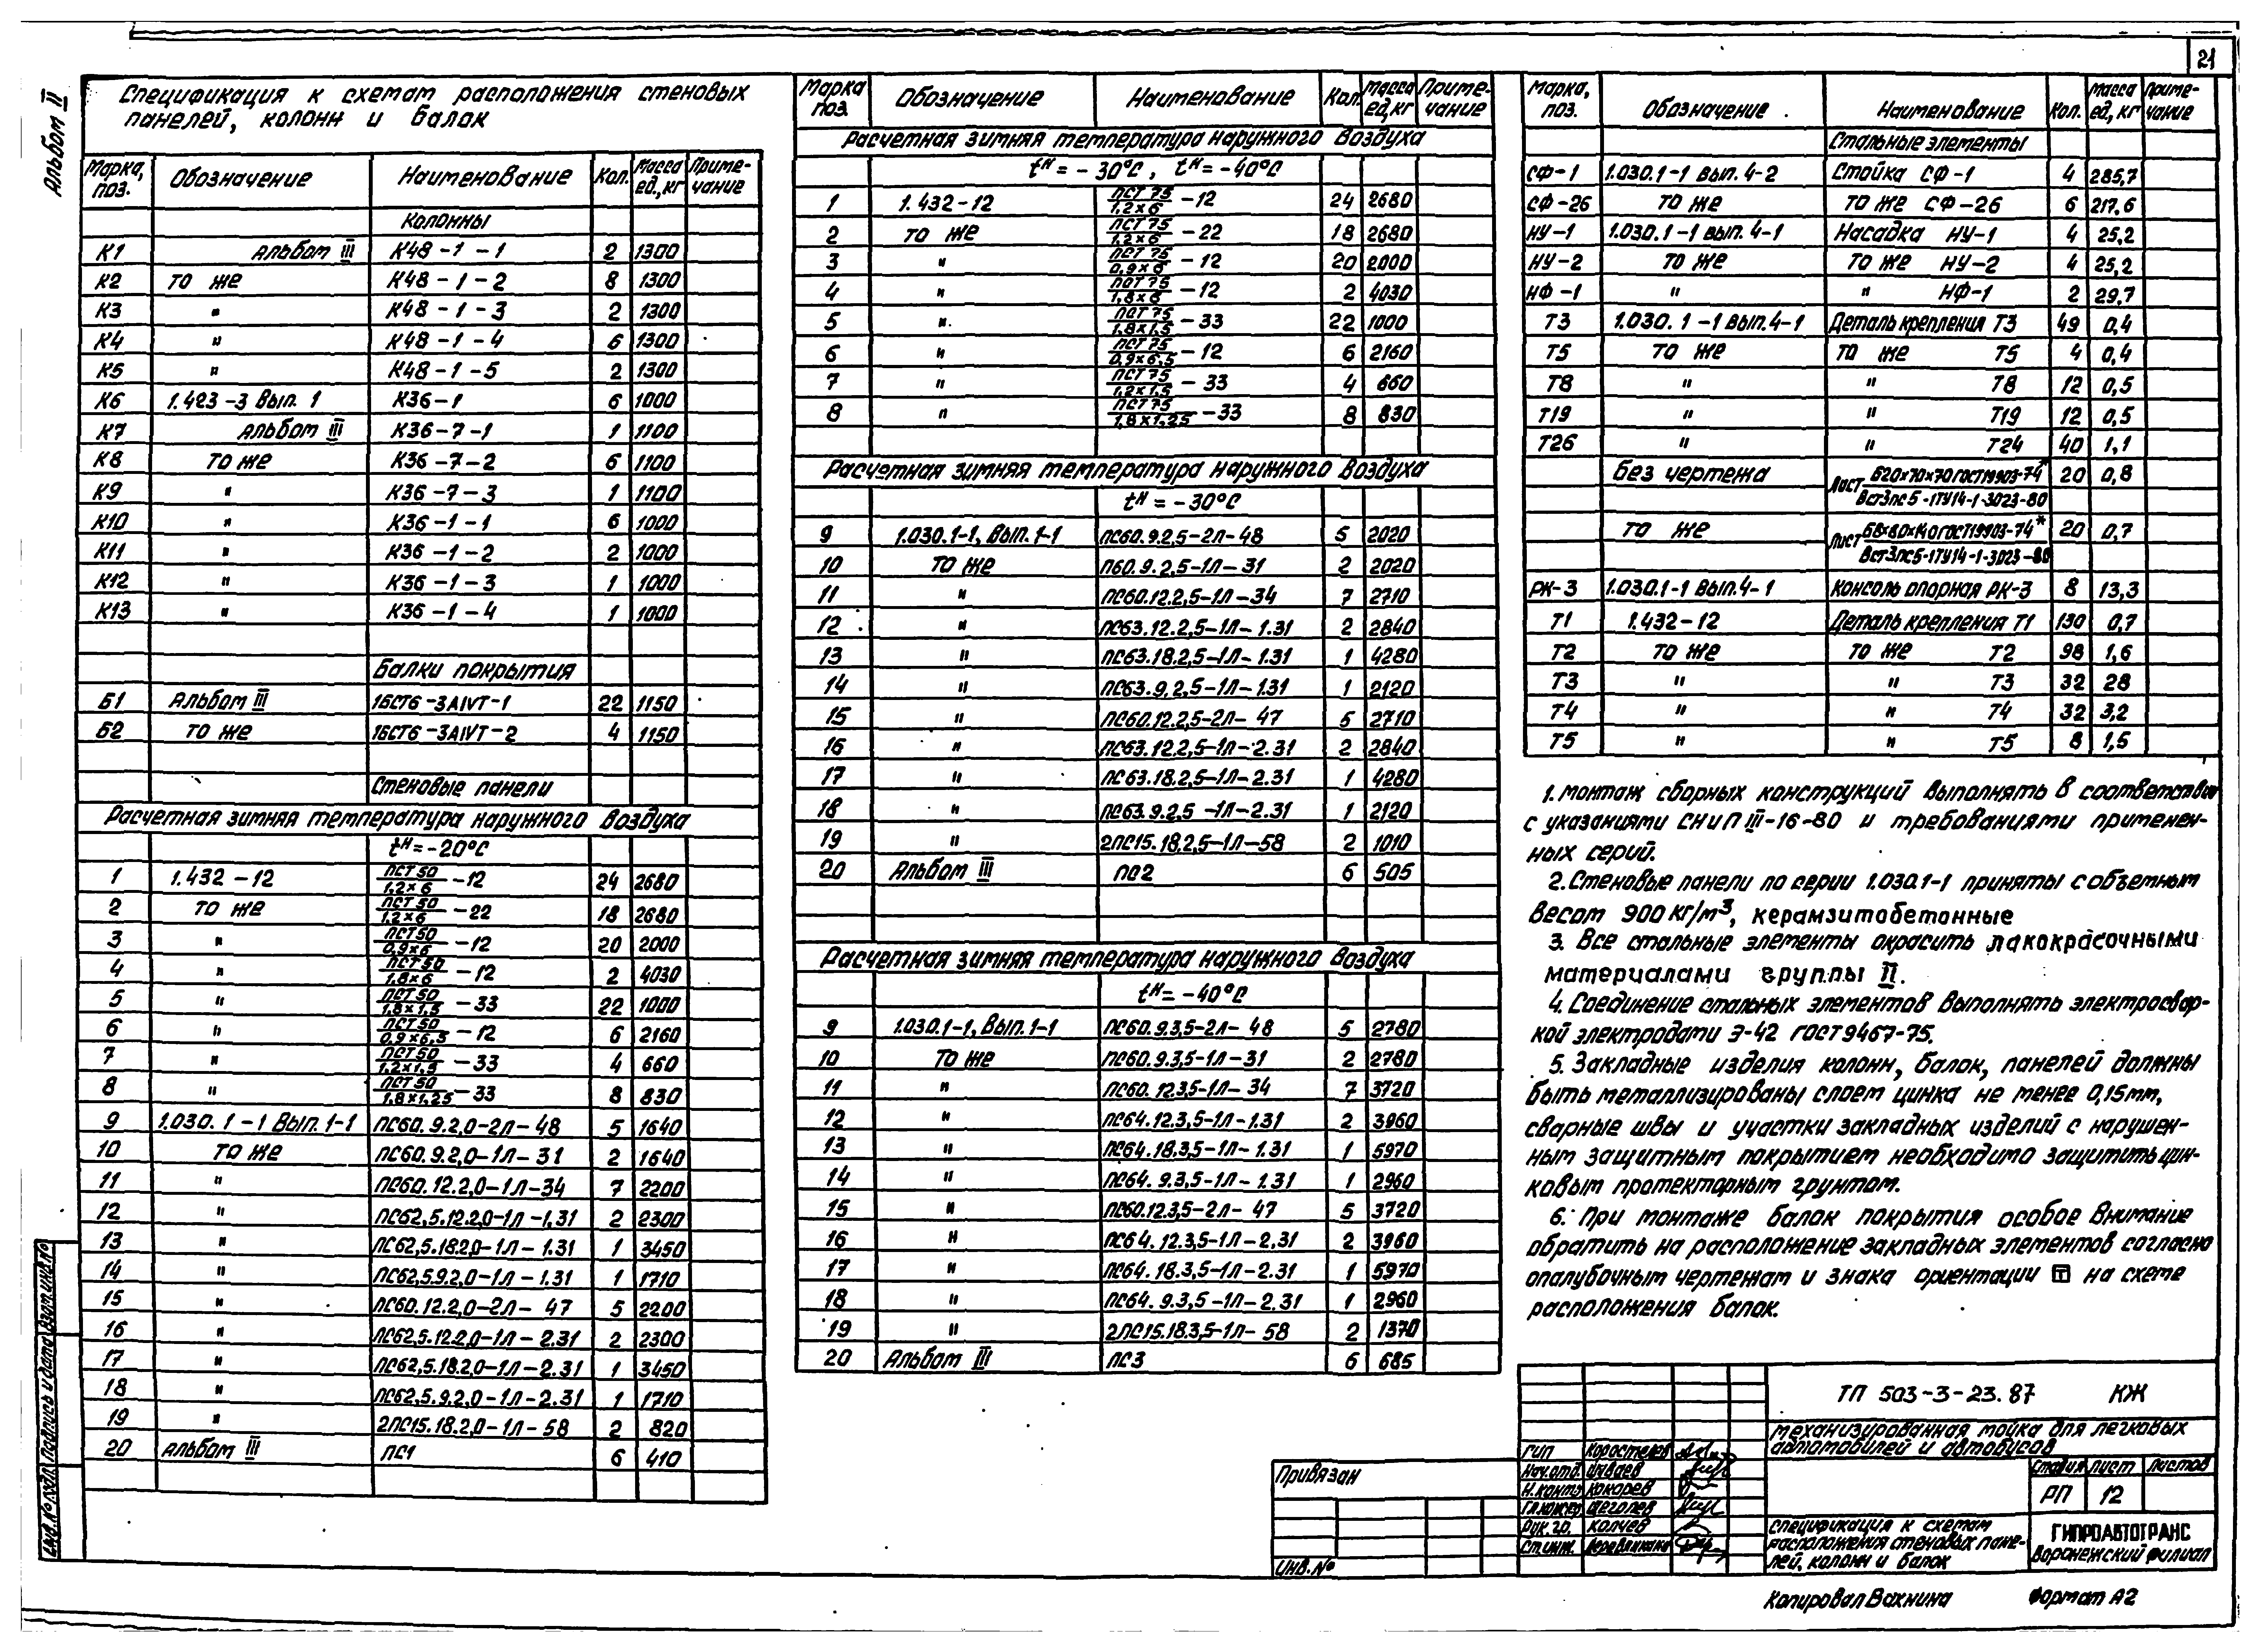 21
Альбом II
Спецификация к схемам расположения стеновых
панелей, колонн и балок
Марка, поз. Обозначение Наименование Кол. Масса ед,кг Приме-чание
Колонны
К1 Альбом III К48-1-1 2 1300
К2 то же К48-1-2 8 1300
К3 " К48-1-3 2 1300
К4 " К48-1-4 6 1300
К5 " К48-1-5 2 1300
К6 1.423-3 Вып. 1 К36-1 6 1000
К7 Альбом III К36-7-1 1 1100
К8 то же К36-7-2 6 1100
К9 " К36-7-3 1 1100
К10 " К36-1-1 6 1000
К11 " К36-1-2 2 1000
К12 " К36-1-3 1 1000
К13 " К36-1-4 1 1000
Балки покрытия
Б1 Альбом III 1БСТ6-3АIVТ-1 22 1150
Б2 то же 1БСТ6-3АIVТ-2 4 1150
Стеновые панели
Расчетная зимняя температура наружного воздуха
tн=-20°С
1 1.432-12 ПСТ 50/1,2×6 -12 24 2680
2 то же ПСТ 50/1,2×6 -22 18 2680
3 " ПСТ 50/0,9×6 -12 20 2000
4 " ПСТ 50/1,8×6 -12 2 4030
5 " ПСТ 50/1,8×1,5 -33 22 1000
6 " ПСТ 50/0,9×6,5 -12 6 2160
7 " ПСТ 50/1,2×1,5 -33 4 660
8 " ПСТ 50/1,8×1,25 -33 8 830
9 1.030.1-1 Вып. 1-1 ПС60.9.2,0-2Л-48 5 1640
10 то же ПС60.9.2,0-1Л-31 2 1640
11 " ПС60.12.2,0-1Л-34 7 2200
12 " ПС62,5.12.2,0-1Л-1.31 2 2300
13 " ПС62,5.18.2,0-1Л-1.31 1 3450
14 " ПС62,5.9.2,0-1Л-1.31 1 1710
15 " ПС60.12.2,0-2Л-47 5 2200
16 " ПС62,5.12.2,0-1Л-2.31 2 2300
17 " ПС62,5.18.2,0-1Л-2.31 1 3450
18 " ПС62,5.9.2,0-1Л-2.31 1 1710
19 " 2ПС15.18.2,0-1Л-58 2 820
20 Альбом III ПС1 6 410
Марка поз. Обозначение Наименование Кол. Масса ед,кг Приме-чание
Расчетная зимняя температура наружного воздуха
tн=-30°С, tн=-40°С
1 1.432-12 ПСТ 75/1,2×6 -12 24 2680
2 то же ПСТ 75/1,2×6 -22 18 2680
3 " ПСТ 75/0,9×6 -12 20 2000
4 " ПСТ 75/1,8×6 -12 2 4030
5 " ПСТ 75/1,8×1,5 -33 22 1000
6 " ПСТ 75/0,9×6,5 -12 6 2160
7 " ПСТ 75/1,2×1,5 -33 4 660
8 " ПСТ 75/1,8×1,25 -33 8 830
Расчетная зимняя температура наружного воздуха
tн=-30°С
9 1.030.1-1, Вып. 1-1 ПС60.9.2,5-2Л-48 5 2020
10 то же П60.9.2,5-1Л-31 2 2020
11 " ПС60.12.2,5-1Л-34 7 2710
12 " ПС63.12.2,5-1Л-1.31 2 2840
13 " ПС63.18.2,5-1Л-1.31 1 4280
14 " ПС63.9.2,5-1Л-1.31 1 2120
15 " ПС60.12.2,5-2Л-47 5 2710
16 " ПС63.12.2,5-1Л-2.31 2 2840
17 " ПС63.18.2,5-1Л-2.31 1 4280
18 " ПС63.9.2,5-1Л-2.31 1 2120
19 " 2ПС15.18.2,5-1Л-58 2 1010
20 Альбом III ПС2 6 505
Расчетная зимняя температура наружного воздуха
tн=-40°С
9 1.030.1-1, Вып. 1-1 ПС60.9.3,5-2Л-48 5 2780
10 то же ПС60.9.3,5-1Л-31 2 2780
11 " ПС60.12.3,5-1Л-34 7 3720
12 " ПС64.12.3,5-1Л-1.31 2 3960
13 " ПС64.18.3,5-1Л-1.31 1 5970
14 " ПС64.9.3,5-1Л-1.31 1 2960
15 " ПС60.12.3,5-2Л-47 5 3720
16 " ПС64.12.3,5-1Л-2.31 2 3960
17 " ПС64.18.3,5-1Л-2.31 1 5970
18 " ПС64.9.3,5-1Л-2.31 1 2960
19 " 2ПС15.18.3,5-1Л-58 2 1370
20 Альбом III ПС3 6 685
Марка, поз. Обозначение Наименование Кол. Масса ед,кг Приме-чание
Стальные элементы
СФ-1 1.030.1-1 Вып. 4-2 Стойка СФ-1 4 285,7
СФ-26 то же то же СФ-26 6 217,6
НУ-1 1.030.1-1 Вып. 4-1 Насадка НУ-1 4 25,2
НУ-2 то же то же НУ-2 4 25,2
НФ-1 " " НФ-1 2 29,7
Т3 1.030.1-1 Вып.4-1 Деталь крепления Т3 49 0,4
Т5 то же то же Т5 4 0,4
Т8 " " Т8 12 0,5
Т19 " " Т19 12 0,5
Т26 " " Т24 40 1,1
Без чертежа Лист Б20×70×70 ГОСТ19903-74* / ВСт3пс5-1ТУ14-1-3023-80 20 0,8
то же Лист Б8×80×140 ГОСТ19903-74* / ВСт3пс5-1ТУ14-1-3023-80 20 0,7
РК-3 1.030.1-1 Вып.4-1 Консоль опорная РК-3 8 13,3
Т1 1.432-12 Деталь крепления Т1 130 0,7
Т2 то же то же Т2 98 1,6
Т3 " " Т3 32 28
Т4 " " Т4 32 3,2
Т5 " " Т5 8 1,5
1. Монтаж сборных конструкций выполнять в соответствии
с указаниями СНиП III-16-80 и требованиями применен-
ных серий.
2. Стеновые панели по серии 1.030.1-1 приняты с объемным
весом 900 кг/м³, керамзитобетонные
3. Все стальные элементы окрасить лакокрасочными
материалами группы II.
4. Соединение стальных элементов выполнять электросвар-
кой электродами Э-42 ГОСТ 9467-75.
5. Закладные изделия колонн, балок, панелей должны
быть металлизированы слоем цинка не менее 0,15мм,
сварные швы и участки закладных изделий с нарушен-
ным защитным покрытием необходимо защитить цин-
ковым протекторным грунтом.
6. При монтаже балок покрытия особое внимание
обратить на расположение закладных элементов согласно
опалубочным чертежам и знака ориентации на схеме
расположения балок.
ТП 503-3-23.87 КЖ
Механизированная мойка для легковых
автомобилей и автобусов
ГИП Коростелев
Нач.отд. Шиваев
Н.контр Кокарев
Гл.констр Щеголев
Рук.гр. Колчев
Ст.инж.
Стадия Лист Листов
РП 12
Спецификация к схемам
расположения стеновых пане-
лей, колонн и балок
ГИПРОАВТОТРАНС
Воронежский филиал
Привязан
Инв.№
Инв.№ подл. Подпись и дата Взам.инв.№
Копировал Вахнина Формат А2